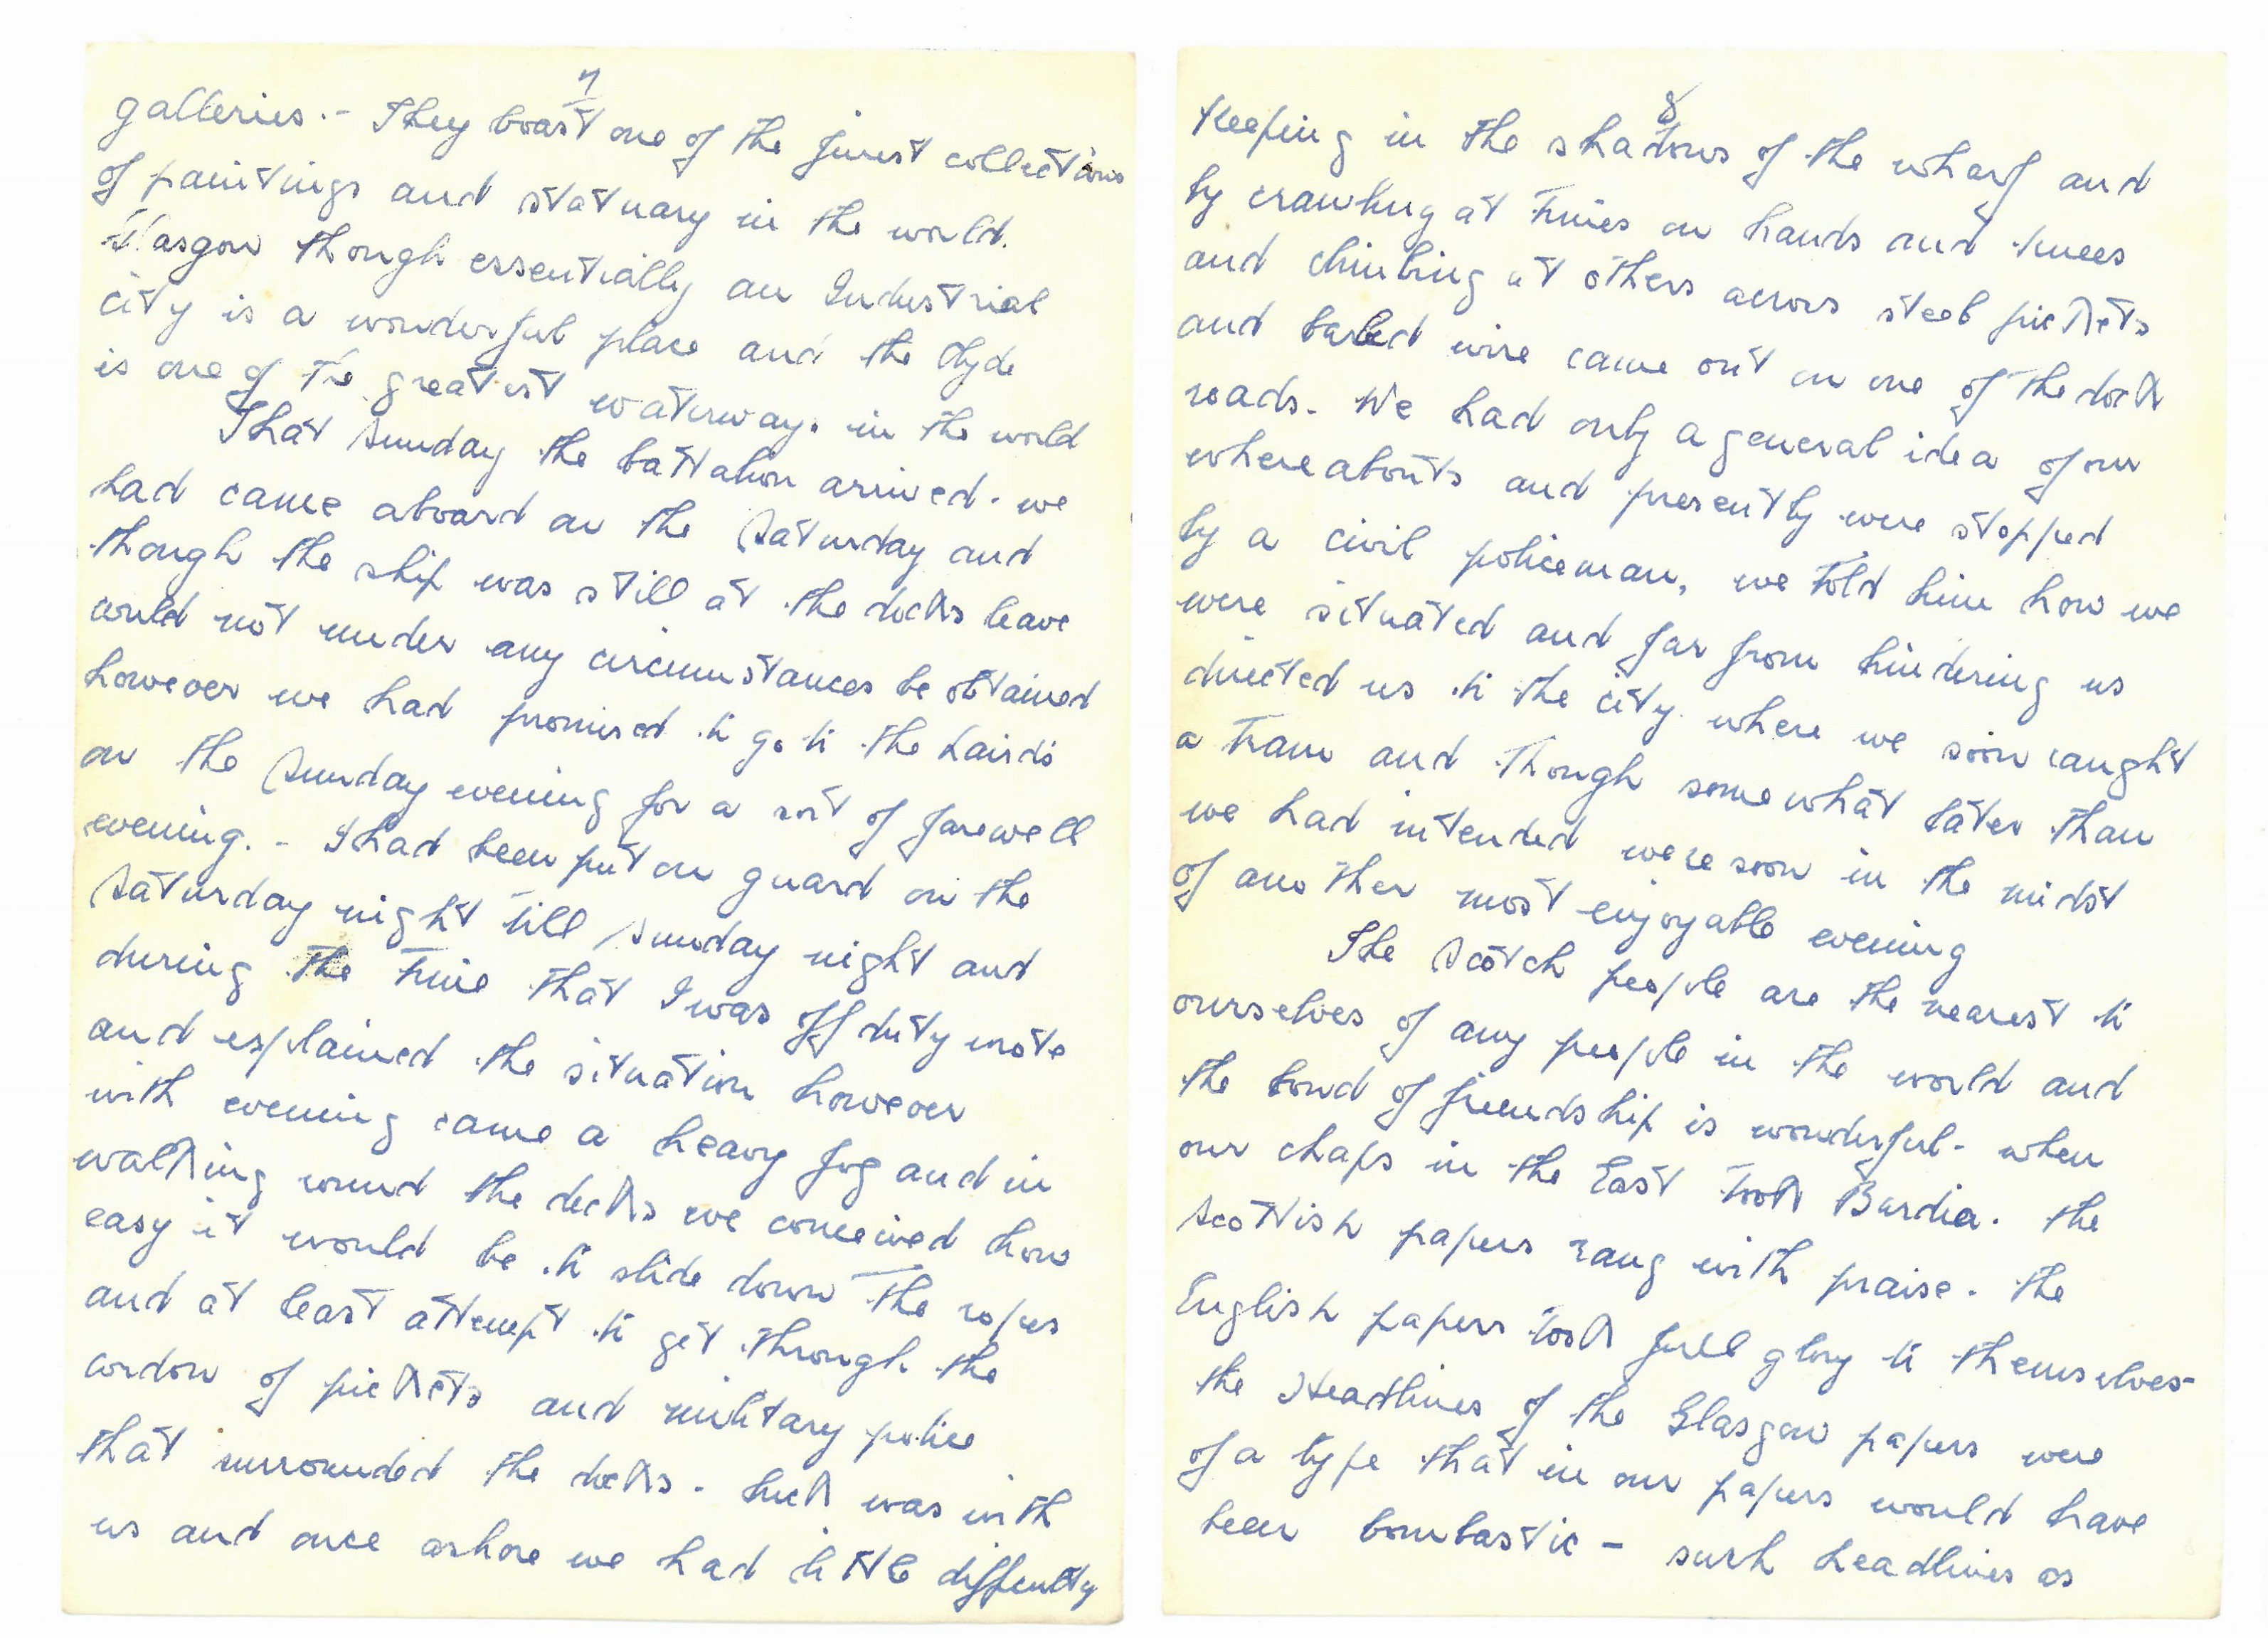 7
galleries.- They boast one of the finest collections
of paintings and statuary in the world.
Glasgow though essentially an Industrial
city is a wonderful place and the Clyde
is one of the greatest waterways in the world
That Sunday the battalion arrived. we
had came aboard on the Saturday and
though the ship was still at the docks leave
could not under any circumstances be obtained
however we had promised to go to the Lairds
on the Sunday evening for a sort of farewell
evening. - I had been put on guard on the
Saturday night till Sunday night and
during the time that I was off duty wrote
and explained the situation however
with evening came a heavy fog and in
walking round the decks we conceived how
easy it would be to slide down the ropes
and at least attempt to get through the
cordon of pickets and military police
that surrounded the docks - Luck was with
us and once ashore we had little difficulty
8
Keeping in the shadows of the wharf and
by crawling at times on hands and knees
and climbing at others across steel pickets
and barbed wire came out on one of the dock
roads. We had only a general idea of our
whereabouts and presently were stopped
by a civil policeman, we told him how we
were situated and far from hindering us
directed us to the city where we soon caught
a tram and though somewhat later than
we had intended were soon in the midst
of another most enjoyable evening
The Scotch people are the nearest to
ourselves of any people in the world and
the bond of friendship is wonderful - when
our chaps in the East took Bardia. the
Scottish papers rang with praise. the
English papers took full glory to themselves-
the Headlines of the Glasgow papers were
of a type that in our papers would have
been bombastic - such headlines as